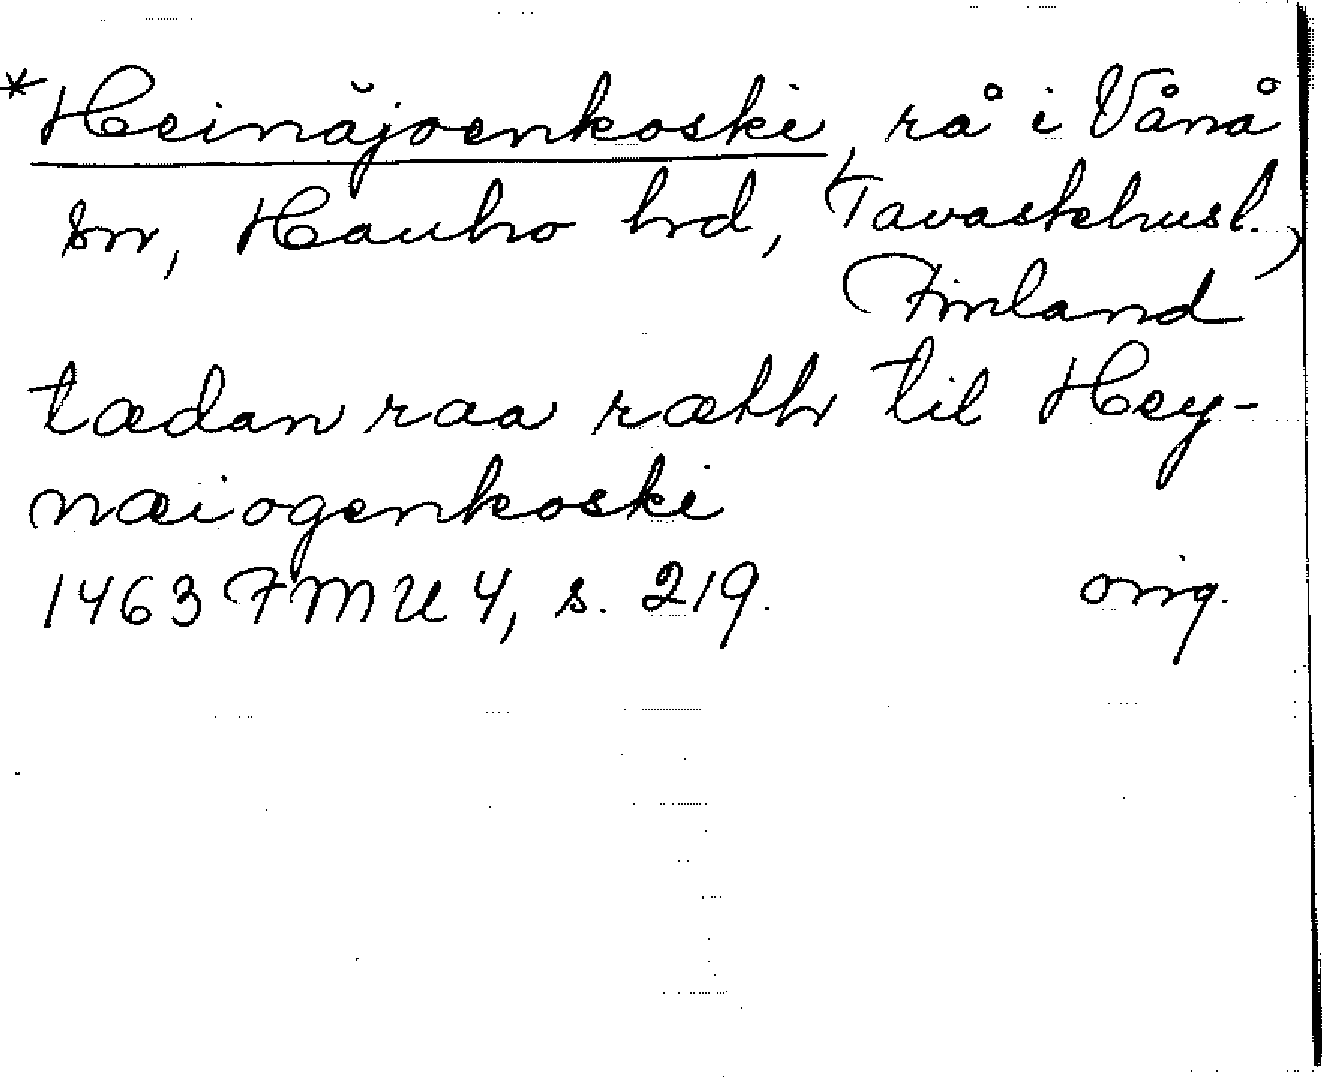 *Heinäjoenkoski, rå i Vånå
sn, Hauho hd, Tavastehusl.,
Finland
tædan raa rætth til Hey-
næiogenkoski
1463 FMU 4, s. 219. orig.